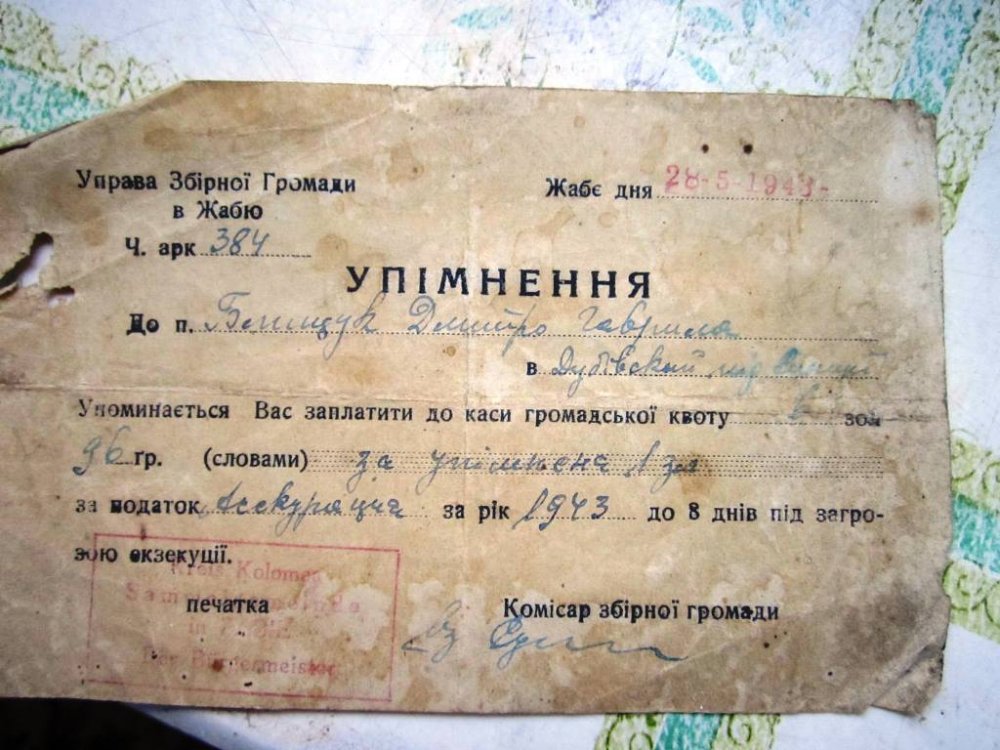 Управа Збірної Громади
в Жабю
Жабє дня 28-5-1943-
Ч. арк 384
УПІМНЕННЯ
До п. Дмитро Гаврила
в Дубівский під
Упоминається Вас заплатити до каси громадської квоту 6 зол
96 ґр. (словами) за упімнена 1 зл
за податок Асекурация за рік 1943 до 8 днів під загро-
зою екзекуції.
Kreis Kolomea
печатка
Комісар збірної громади
Der Bürgermeister